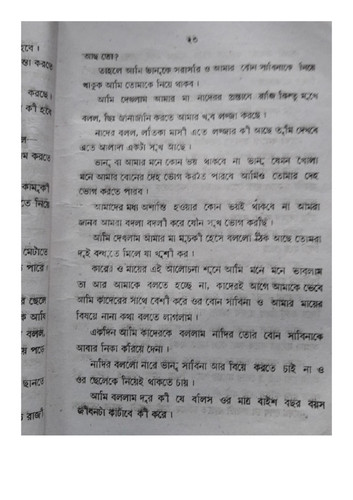 ২৩
আছ তো?
তাহলে আমি ভানুকে সরাসরি ও আমার বোন সাবিনাকে নিয়ে
থাকুক আমি তোমাকে নিয়ে থাকব।
আমি দেখলাম আমার মা নাদেরের প্রস্তাবে রাজি কিন্তু মুখে
বলল, ছিঃ জানাজানি করতে আমার খুব লজ্জা করছে।
নাদের বলল, লতিকা মাসী এতে লজ্জার কী আছে তুমি দেখবে
এতে আলাদা একটা সুখ আছে।
ভানু বা আমার মনে কোন ভয় থাকবে না ভানু যেমন খোলা
মনে আমার বোনের দেহ ভোগ করতে পারবে আমিও তোমার দেহ
ভোগ করতে পারব।
আমাদের মধ্য অশান্তি হওয়ার কোন ভয়ই থাকবে না আমরা
জানব আমরা বদলা বদলী করে যৌন সুখ ভোগ করছি।
আমি দেখলাম আমার মা মুচকী হেসে বললো ঠিক আছে তোমরা
দুই বন্ধুতে মিলে যা খুশী কর।
মায়ের এই আলোচনা শুনে আমি মনে মনে ভাবলাম
তা আর আমাকে বলতে হচ্ছে না, কাদেরই আগে আমাকে ভেবে
আমি কাদেরের সাথে বেশী করে ওর বোন সাবিনা ও আমার মায়ের
বিষয়ে নানা কথা বলতে লাগলাম।
একদিন আমি কাদেরকে বললাম নাদির তোর বোন সাবিনাকে
আবার নিকা করিয়ে দেনা।
নাদির বললো নারে ভানু, সাবিনা আর বিয়ে করতে চাই না ও
ওর ছেলেকে নিয়েই থাকতে চায়।
আমি বললাম দুর কী যে বলিস ওর মাত্র বাইশ বছর বয়স
জীবনটা কাটাবে কী করে।